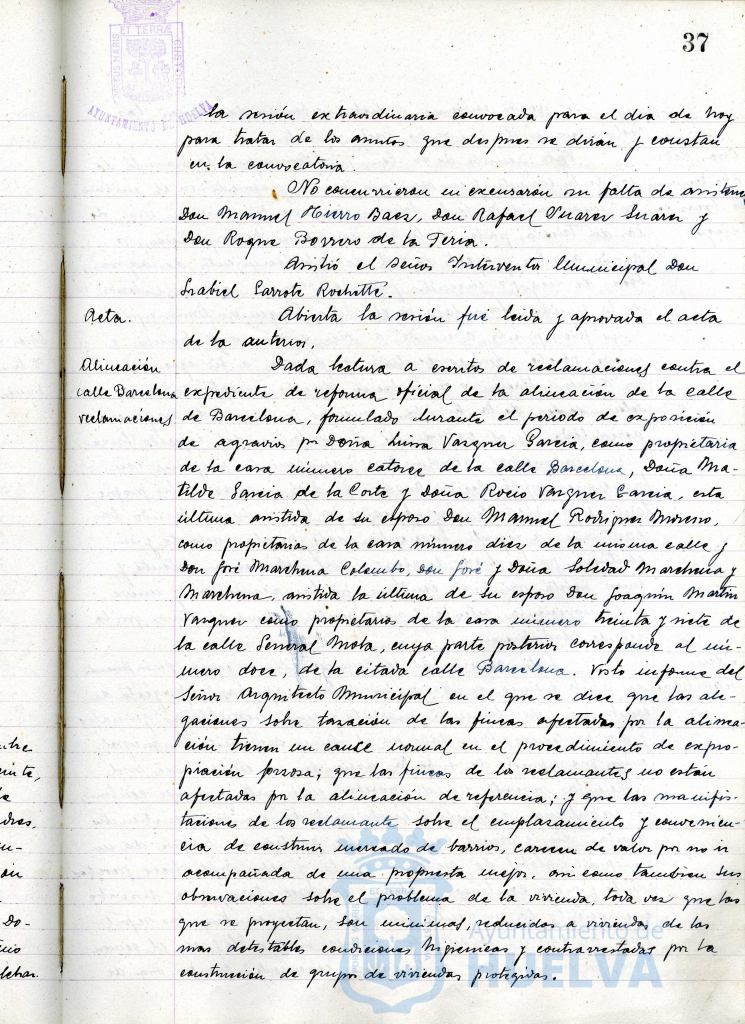 37
PORTUS MARIS ET TERRÆ CUSTODIA
AYUNTAMIENTO DE HUELVA
la sesión extraordinaria convocada para el dia de hoy
para tratar de los asuntos que despues se dirán y constan
en la convocatoria.
No concurrieron ni excusaron su falta de asistencia
Don Manuel Hierro Baez, Don Rafael Suarez Suarez y
Don Roque Borrero de la Feria.
Asistió el señor Interventor Municipal Don
Isabiel Garrote Rochette.
Acta.
Abierta la sesión fué leida y aprovada el acta
de la anterior.
Alineación
calle Barcelona
reclamaciones
Dada lectura a escritos de reclamaciones contra el
expediente de reforma oficial de la alineación de la calle
de Barcelona, formulado durante el periodo de exposición
de agravios por Doña Luisa Vazquez Garcia, como propietaria
de la casa número catorce de la calle Barcelona, Doña Ma-
tilde Garcia de la Corte y Doña Rocio Vazquez Garcia, esta
última asistida de su esposo Don Manuel Rodriguez Moreno,
como propietarias de la casa número diez de la misma calle y
Don José Marchena Colombo, Don José y Doña Soledad Marchena y
Marchena, asistida la última de su esposo Don Joaquin Martin
Vazquez como propietarios de la casa número treinta y siete de
la calle General Mola, cuya parte posterior corresponde al nú-
mero doce, de la citada calle Barcelona. Visto informe del
Señor Arquitecto Municipal en el que se dice que las ale-
gaciones sobre tasación de las fincas afectadas por la alinea-
ción tienen un cauce normal en el procedimiento de expro-
piación forzosa; que las fincas de los reclamantes no están
afectadas por la alineación de referencia; y que las manifis-
taciones de los reclamante sobre el emplazamiento y convenien-
cia de construir mercado de barrios, carecen de valor por no ir
acompañada de una propuesta mejor, asi como tambien sus
observaciones sobre el problema de la vivienda, toda vez que las
que se proyectan, son minimas, reducidas a viviendas de las
mas detestables condiciones higienicas y contrarestadas por la
construcción de grupos de viviendas protegidas.
Ayuntamiento de
HUELVA